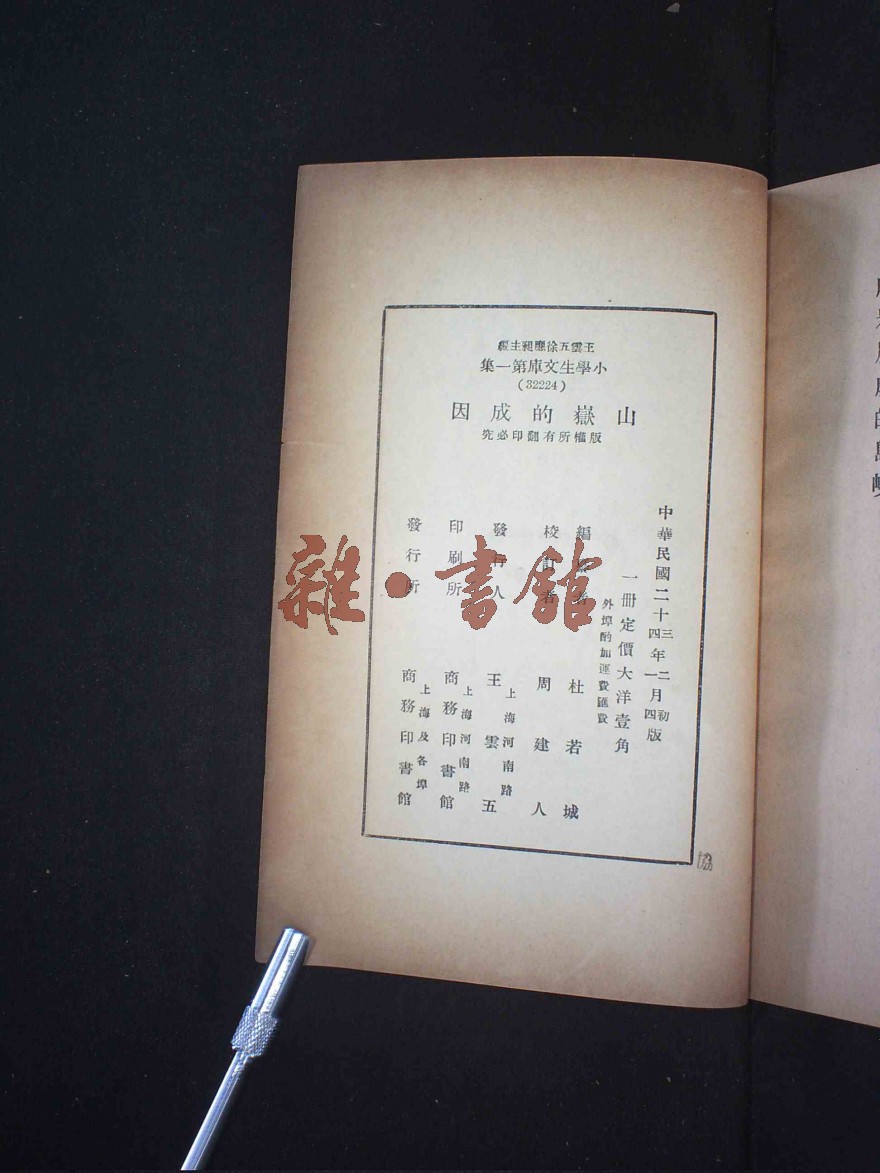 王雲五徐應昶主編
小學生文庫第一集
(32224)
山嶽的成因
版權所有翻印必究
中華民國二十三年二月初版
四 一 四
一冊定價大洋壹角
外埠酌加運費匯費
編 者 杜若城
校訂者 周建人
發行人 王雲五
上海河南路
印刷所 商務印書館
上海河南路
發行所 商務印書館
上海及各埠
雜·書館